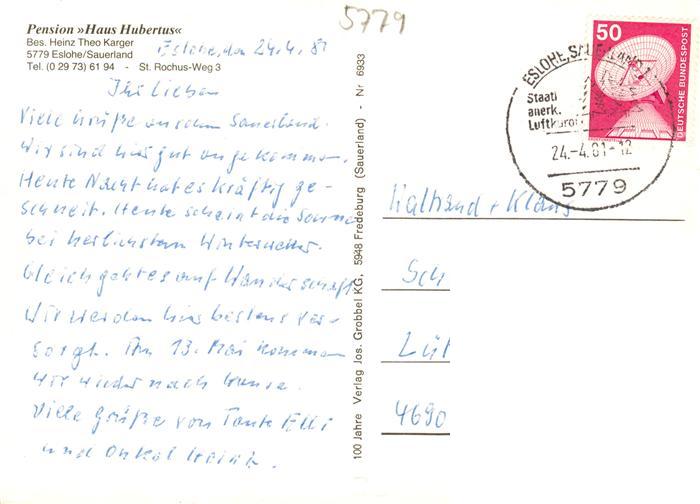 5779
Pension »Haus Hubertus«
Bes. Heinz Theo Karger
5779 Eslohe/Sauerland
Tel. (0 29 73) 61 94 - St. Rochus-Weg 3
Eslohe, den 24.4.81
Ihr Lieben
Viele Grüße aus dem Sauerland.
Wir sind hier gut angekommen.
Heute Nacht hat es kräftig ge-
schneit. Heute scheint die Sonne
bei herlichstem Winterwetter.
Gleich geht es auf Wanderschaft
Wir werden hier bestens ver-
sorgt. Am 13. Mai kommen
wir wieder nach Hause.
Viele Grüße von Tante Elli
und Onkel
100 Jahre Verlag Jos. Grobbel KG, 5948 Fredeburg (Sauerland) - Nr 6933
50
DEUTSCHE BUNDESPOST
ESLOHE, SAUERLAND 1
Staatl
anerk.
Luftkurort
24.-4.81-12
5779
Waltraud + Klaus
Sch
Lüt
4690